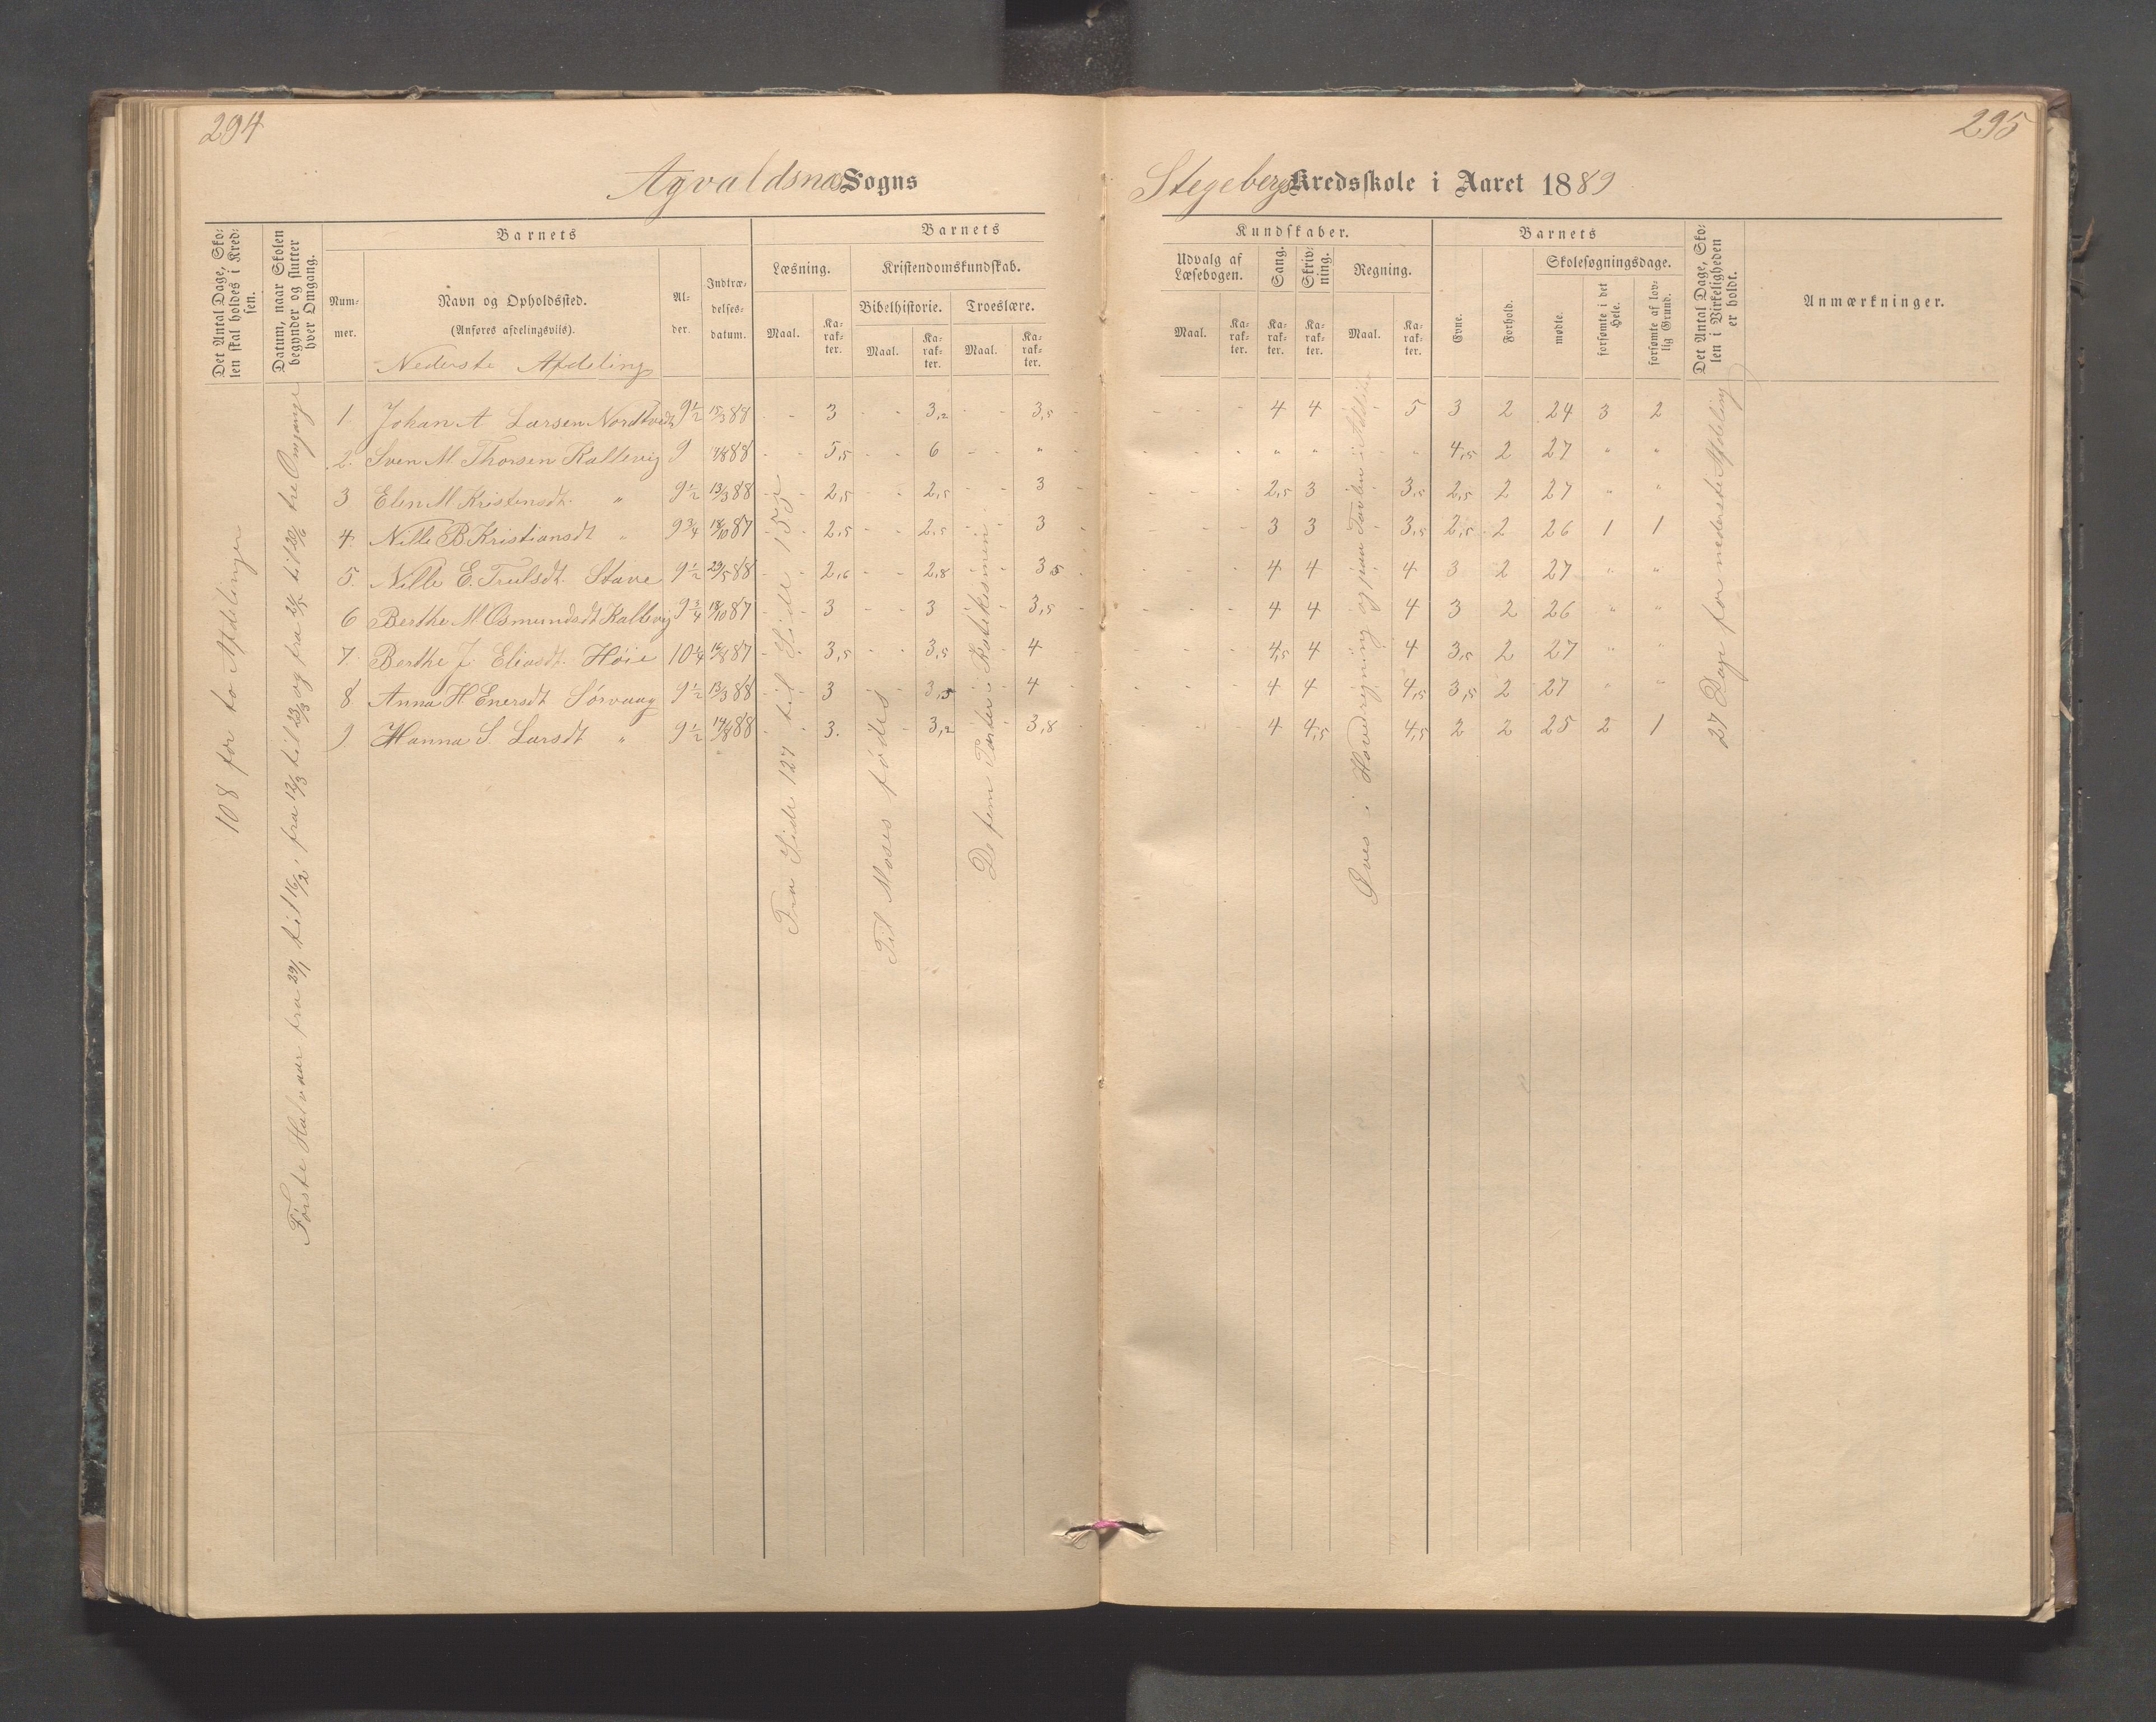 294
295
Agvaldsnæs Sogns
Stegebergs Kredsskole i Aaret 1889
Det Antal Dage, Skolen skal holdes i Kredsen.
Datum, naar Skolen begynder og slutter hver Omgang.
Barnets
Nummer.
Navn og Opholdssted.
(Anføres afdelingsvis).
Nederste Afdeling
Alder.
Indtrædelsesdatum.
Barnets
Læsning.
Maal.
Karakter.
Kristendomskundskab.
Bibelhistorie.
Maal.
Karakter.
Troeslære.
Maal.
Karakter.
Kundskaber.
Udvalg af Læsebogen.
Maal.
Karakter.
Sang.
Karakter.
Skrivning.
Karakter.
Regning.
Maal.
Karakter.
Barnets
Evne.
Forhold.
Skolesøgningsdage.
mødte.
forsømte i det Hele.
forsømte af lovlig Grund.
Det Antal Dage, Skolen i Virkeligheden er holdt.
Anmærkninger.
108 for to Afdelinger
Første Halvaar fra 29/1 til 16/2, fra 12/3 til 23/3 og fra 21/5 til 20/6 tre Omgange
1 Johan A Larsen Nordtvedt 9½ 15/3 88 - - 3 - - 3,2 - - 3,5 - - - - 4 4 5 3 2 24 3 2
2. Sven M. Thorsen Kallevig 9 88 - - 5,5 - - 6 - - " - - - - " " - " 4,5 2 27 " "
3 Elen M Kristensdt. " 9½ 13/3 88 - - 2,5 - - 2,5 - - 3 - - - - 2,5 3 3,5 2,5 2 27 " "
4. Nille B. Kristiansdt " 9¾ 18/10 87 - - 2,5 - - 2,5 - - 3 - - - 3 3 3,5 2,5 2 26 1 1
5. Nille E. Trulsdt. Stave 9½ 29/5 88 - - 2,6 - - 2,8 - 3,5 - - - 4 4 4 3 2 27 " "
6 Berthe M. Osmundsdt Kallevig 9¾ 18/10 87 - - 3 - - 3 - 3,5 - - - 4 4 4 3 2 26 " "
7. Berthe J. Eliasdt. Høie 10¼ 87 - - 3,5 - - 3,5 - 4 - - - 4,5 4 4 3,5 2 27 " "
8 Anna H Enersdt Sørvaag 9½ 13/3 88 - - 3 - - 3,5 - 4 - - - 4 4 4,5 3,5 2 27 " "
9. Hanna S. Larsdt " 9½ 88 - 3. - 3,2 - 3,8 - - - 4 4,5 4,5 2 2 25 2 1
Fra Side 127 til Side 155
Til Moses fødes
De fem Parter i Katekismen
Øves i Hovedregning og paa Tavlen i Addition
27 Dage for nederste Afdeling